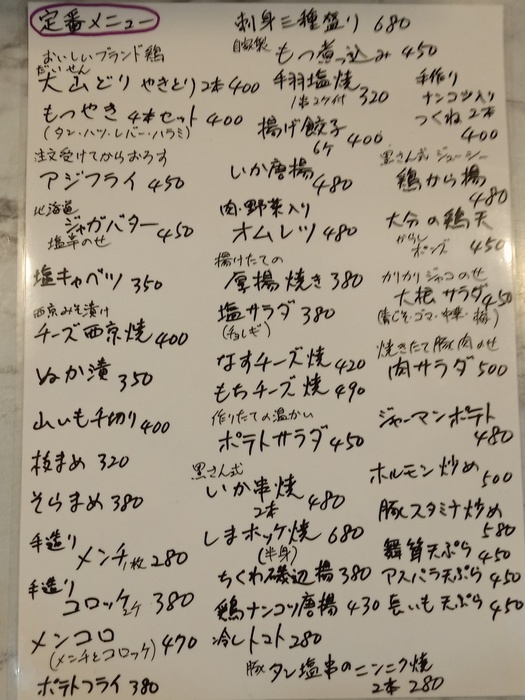 定番メニュー
おいしいブランド鶏
だいせん
大山どり やきとり2本 400
もつやき 4本セット 400
(タン・ハツ・レバー・ハラミ)
注文受けてからおろす
アジフライ 450
北海道
ジャガバター 450
塩辛のせ
塩キャベツ 350
西京みそ漬け
チーズ西京焼 400
ぬか漬 350
山いも千切り 400
枝まめ 320
そらまめ 380
手造り
メンチ1枚 280
手造り
コロッケ2ケ 380
メンコロ 470
(メンチとコロッケ)
ポテトフライ 380
刺身三種盛り 680
自家製
もつ煮っ込み 450
手羽塩焼 320
1串2ケ付
揚げ餃子 400
6ケ
いか唐揚 480
肉・野菜入り
オムレツ 480
揚げたての
厚揚焼き 380
塩サラダ 380
(チョレギ)
なすチーズ焼 420
もちチーズ焼 490
作りたての温かい
ポテトサラダ 450
黒さん式
いか串焼 480
2本
しまホッケ焼 680
(半身)
ちくわ磯辺揚 380
鶏ナンコツ唐揚 430
冷しトマト 280
豚タン塩串のニンニク焼
2本 280
手作り
ナンコツ入り
つくね2本
400
黒さん式 ジューシー
鶏から揚 480
大分の鶏天 450
からし
ポンズ
カリカリジャコのせ
大根サラダ 450
(青じそ・ゴマ・中華・梅)
焼きたて豚肉のせ
肉サラダ 500
ジャーマンポテト
480
ホルモン炒め 500
豚スタミナ炒め
580
舞茸天ぷら 450
アスパラ天ぷら 450
長いも天ぷら 450